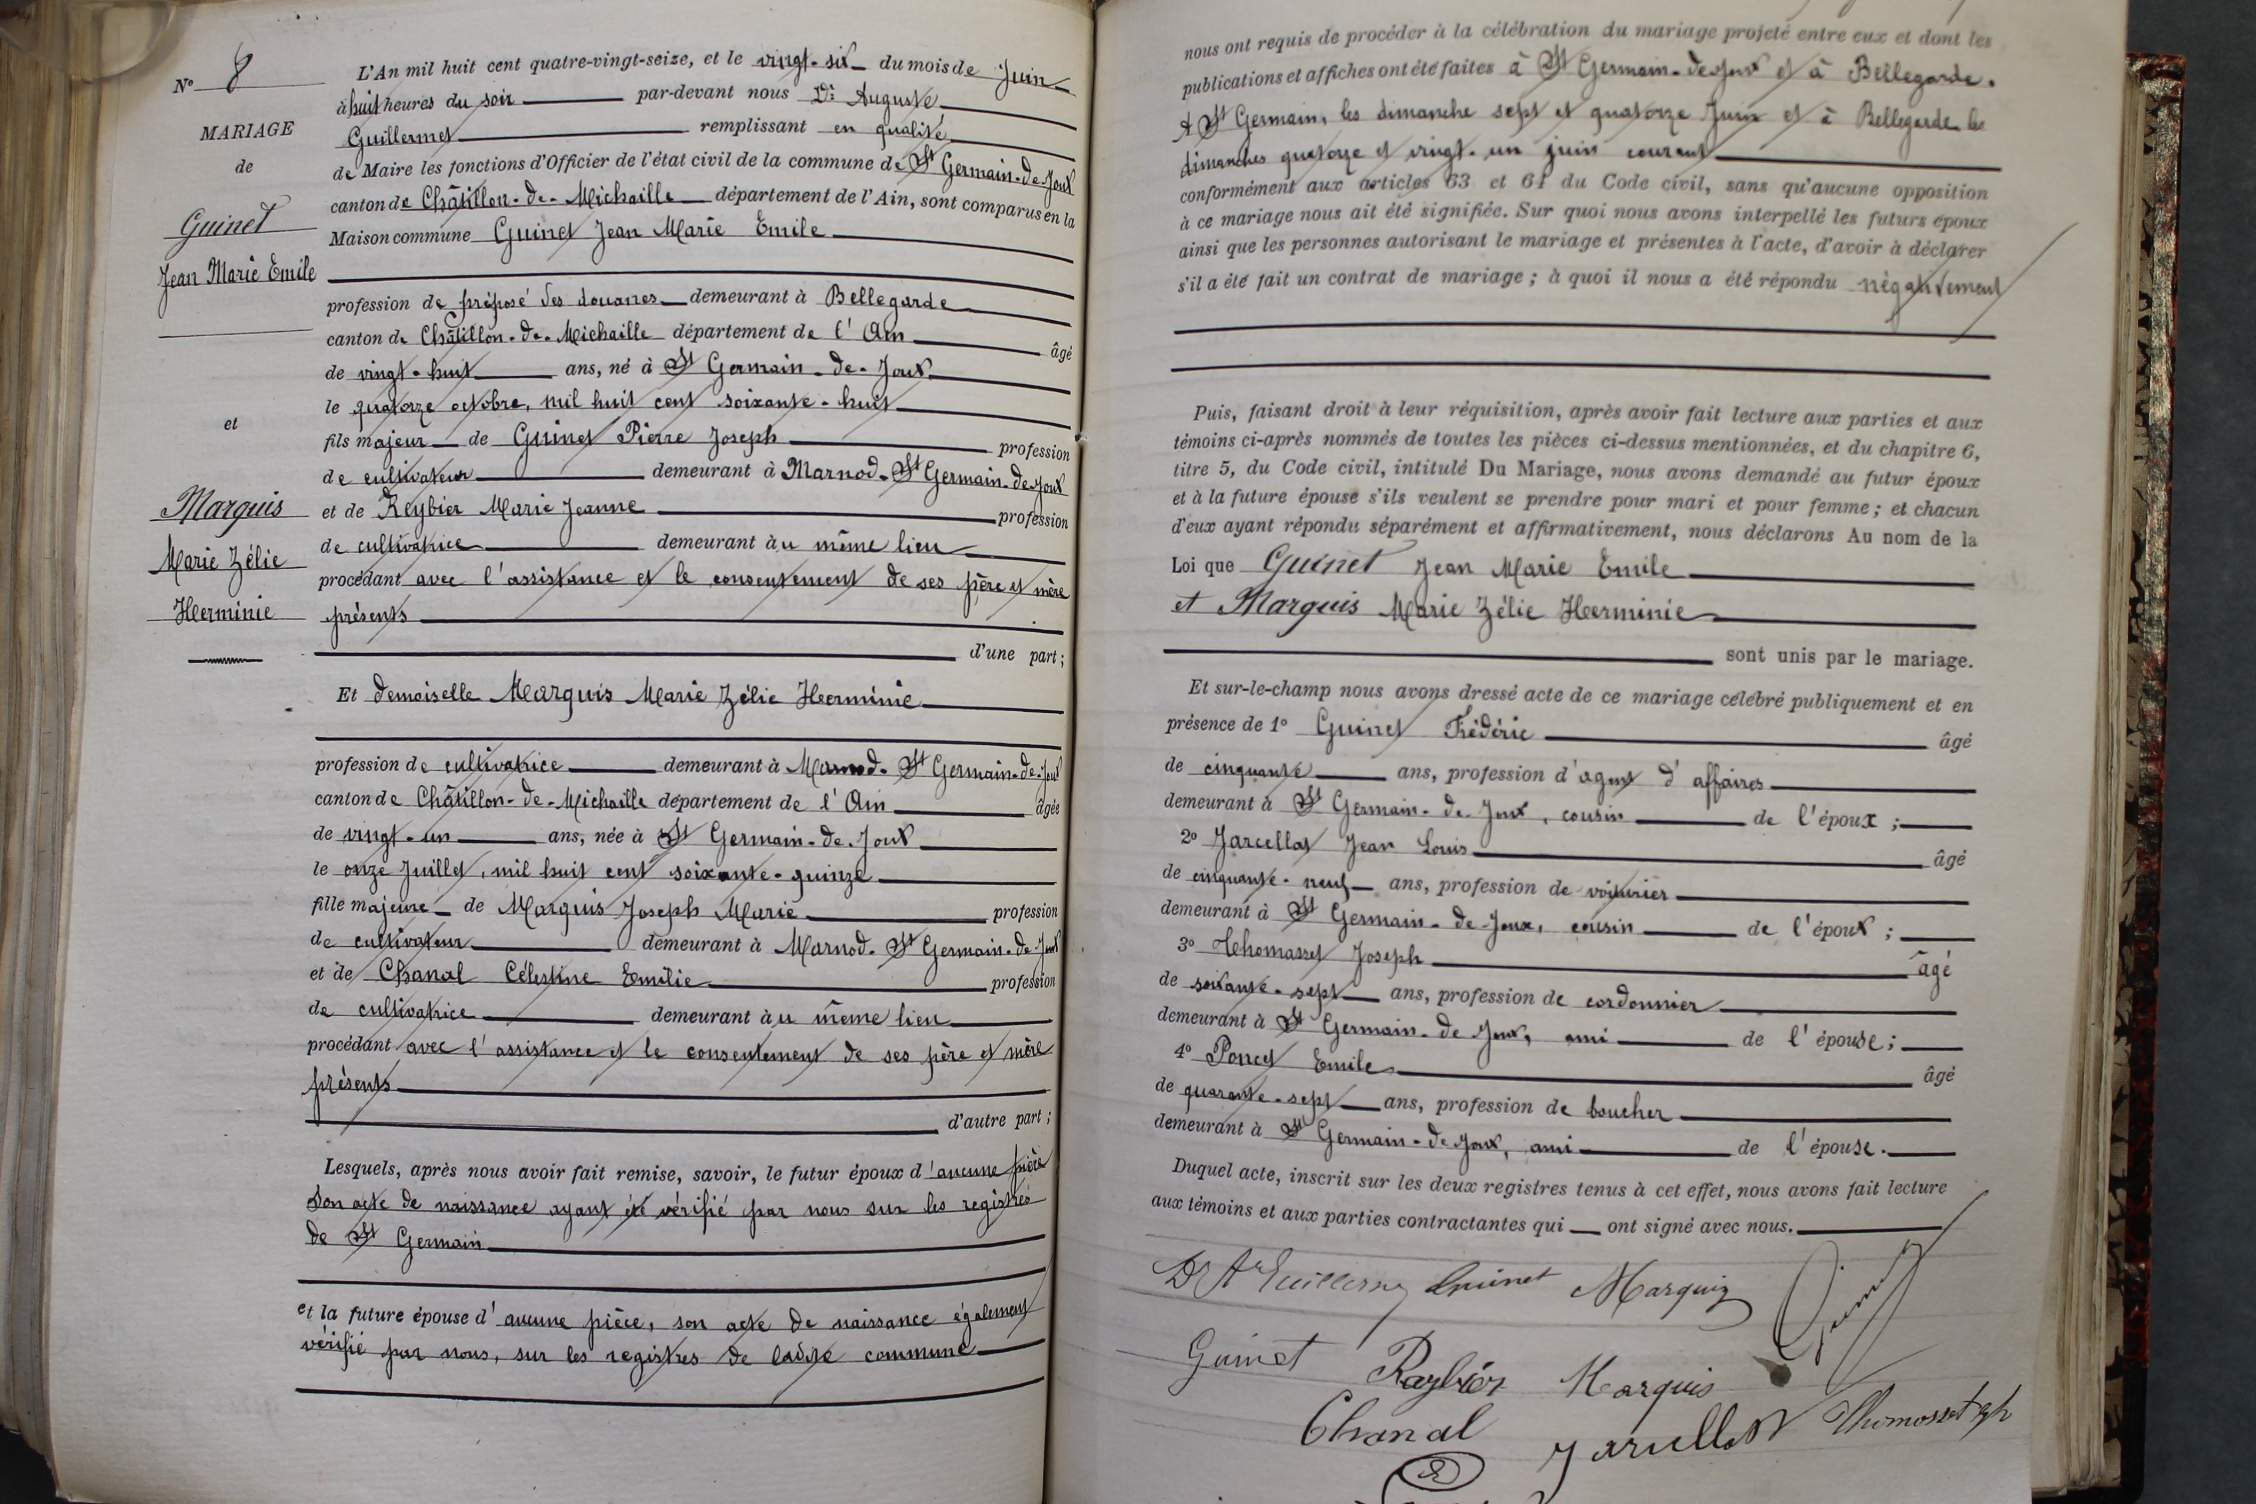 N° 8
MARIAGE
de
Guinet
Jean Marie Emile
et
Marquis
Marie Zélie
Herminie
L'An mil huit cent quatre-vingt-seize, et le vingt-six du mois de Juin
à huit heures du soir par-devant nous Dr Auguste
Guillermet remplissant en qualité
de Maire les fonctions d'Officier de l'état civil de la commune de St Germain-de-Joux
canton de Châtillon-de-Michaille département de l'Ain, sont comparus en la
Maison commune Guinet Jean Marie Emile
profession de préposé des douanes demeurant à Bellegarde
canton de Châtillon-de-Michaille département de l'Ain âgé
de vingt-huit ans, né à St Germain-de-Joux
le quatorze octobre, mil huit cent soixante-huit
fils majeur de Guinet Pierre Joseph profession
de cultivateur demeurant à Marnod-St Germain-de-Joux
et de Reybier Marie Jeanne profession
de cultivatrice demeurant àu même lieu
procédant avec l'assistance et le consentement de ses père et mère
présents
d'une part;
Et demoiselle Marquis Marie Zélie Herminie
profession de cultivatrice demeurant à Marnod-St Germain-de-Joux
canton de Châtillon-de-Michaille département de l'Ain âgée
de vingt-un ans, née à St Germain-de-Joux
le onze Juillet, mil huit cent soixante-quinze
fille majeure de Marquis Joseph Marie profession
de cultivateur demeurant à Marnod-St Germain-de-Joux
et de Chanal Célestine Emilie profession
de cultivatrice demeurant àu même lieu
procédant avec l'assistance et le consentement de ses père et mère
présents
d'autre part;
Lesquels, après nous avoir fait remise, savoir, le futur époux d'aucune pièce
son acte de naissance ayant été vérifié par nous sur les registres
de St Germain
et la future épouse d'aucune pièce, son acte de naissance également
vérifié par nous, sur les registres de ladite commune
nous ont requis de procéder à la célébration du mariage projeté entre eux et dont les
publications et affiches ont été faites à St Germain-de-Joux et à Bellegarde.
A St Germain, les dimanche sept et quatorze Juin et à Bellegarde les
dimanches quatorze et vingt-un juin courant
conformément aux articles 63 et 64 du Code civil, sans qu'aucune opposition
à ce mariage nous ait été signifiée. Sur quoi nous avons interpellé les futurs époux
ainsi que les personnes autorisant le mariage et présentes à l'acte, d'avoir à déclarer
s'il a été fait un contrat de mariage; à quoi il nous a été répondu négativement
Puis, faisant droit à leur réquisition, après avoir fait lecture aux parties et aux
témoins ci-après nommés de toutes les pièces ci-dessus mentionnées, et du chapitre 6,
titre 5, du Code civil, intitulé Du Mariage, nous avons demandé au futur époux
et à la future épouse s'ils veulent se prendre pour mari et pour femme; et chacun
d'eux ayant répondu séparément et affirmativement, nous déclarons Au nom de la
Loi que Guinet Jean Marie Emile
et Marquis Marie Zélie Herminie
sont unis par le mariage.
Et sur-le-champ nous avons dressé acte de ce mariage célébré publiquement et en
présence de 1° Guinet Frédéric âgé
de cinquante ans, profession d'agent d'affaires
demeurant à St Germain-de-Joux, cousin de l'époux;
2° Jarcellat Jean Louis âgé
de cinquante-neuf ans, profession de voiturier
demeurant à St Germain-de-Joux, cousin de l'époux;
3° Thomasset Joseph âgé
de soixante-sept ans, profession de cordonnier
demeurant à St Germain-de-Joux, ami de l'épouse;
4° Poncet Emile âgé
de quarante-sept ans, profession de boucher
demeurant à St Germain-de-Joux, ami de l'épouse.
Duquel acte, inscrit sur les deux registres tenus à cet effet, nous avons fait lecture
aux témoins et aux parties contractantes qui ont signé avec nous.
Dr Ate Guillermet Guinet Marquis
Guinet Reybier Marquis
Chanal Jarcellat Thomosset